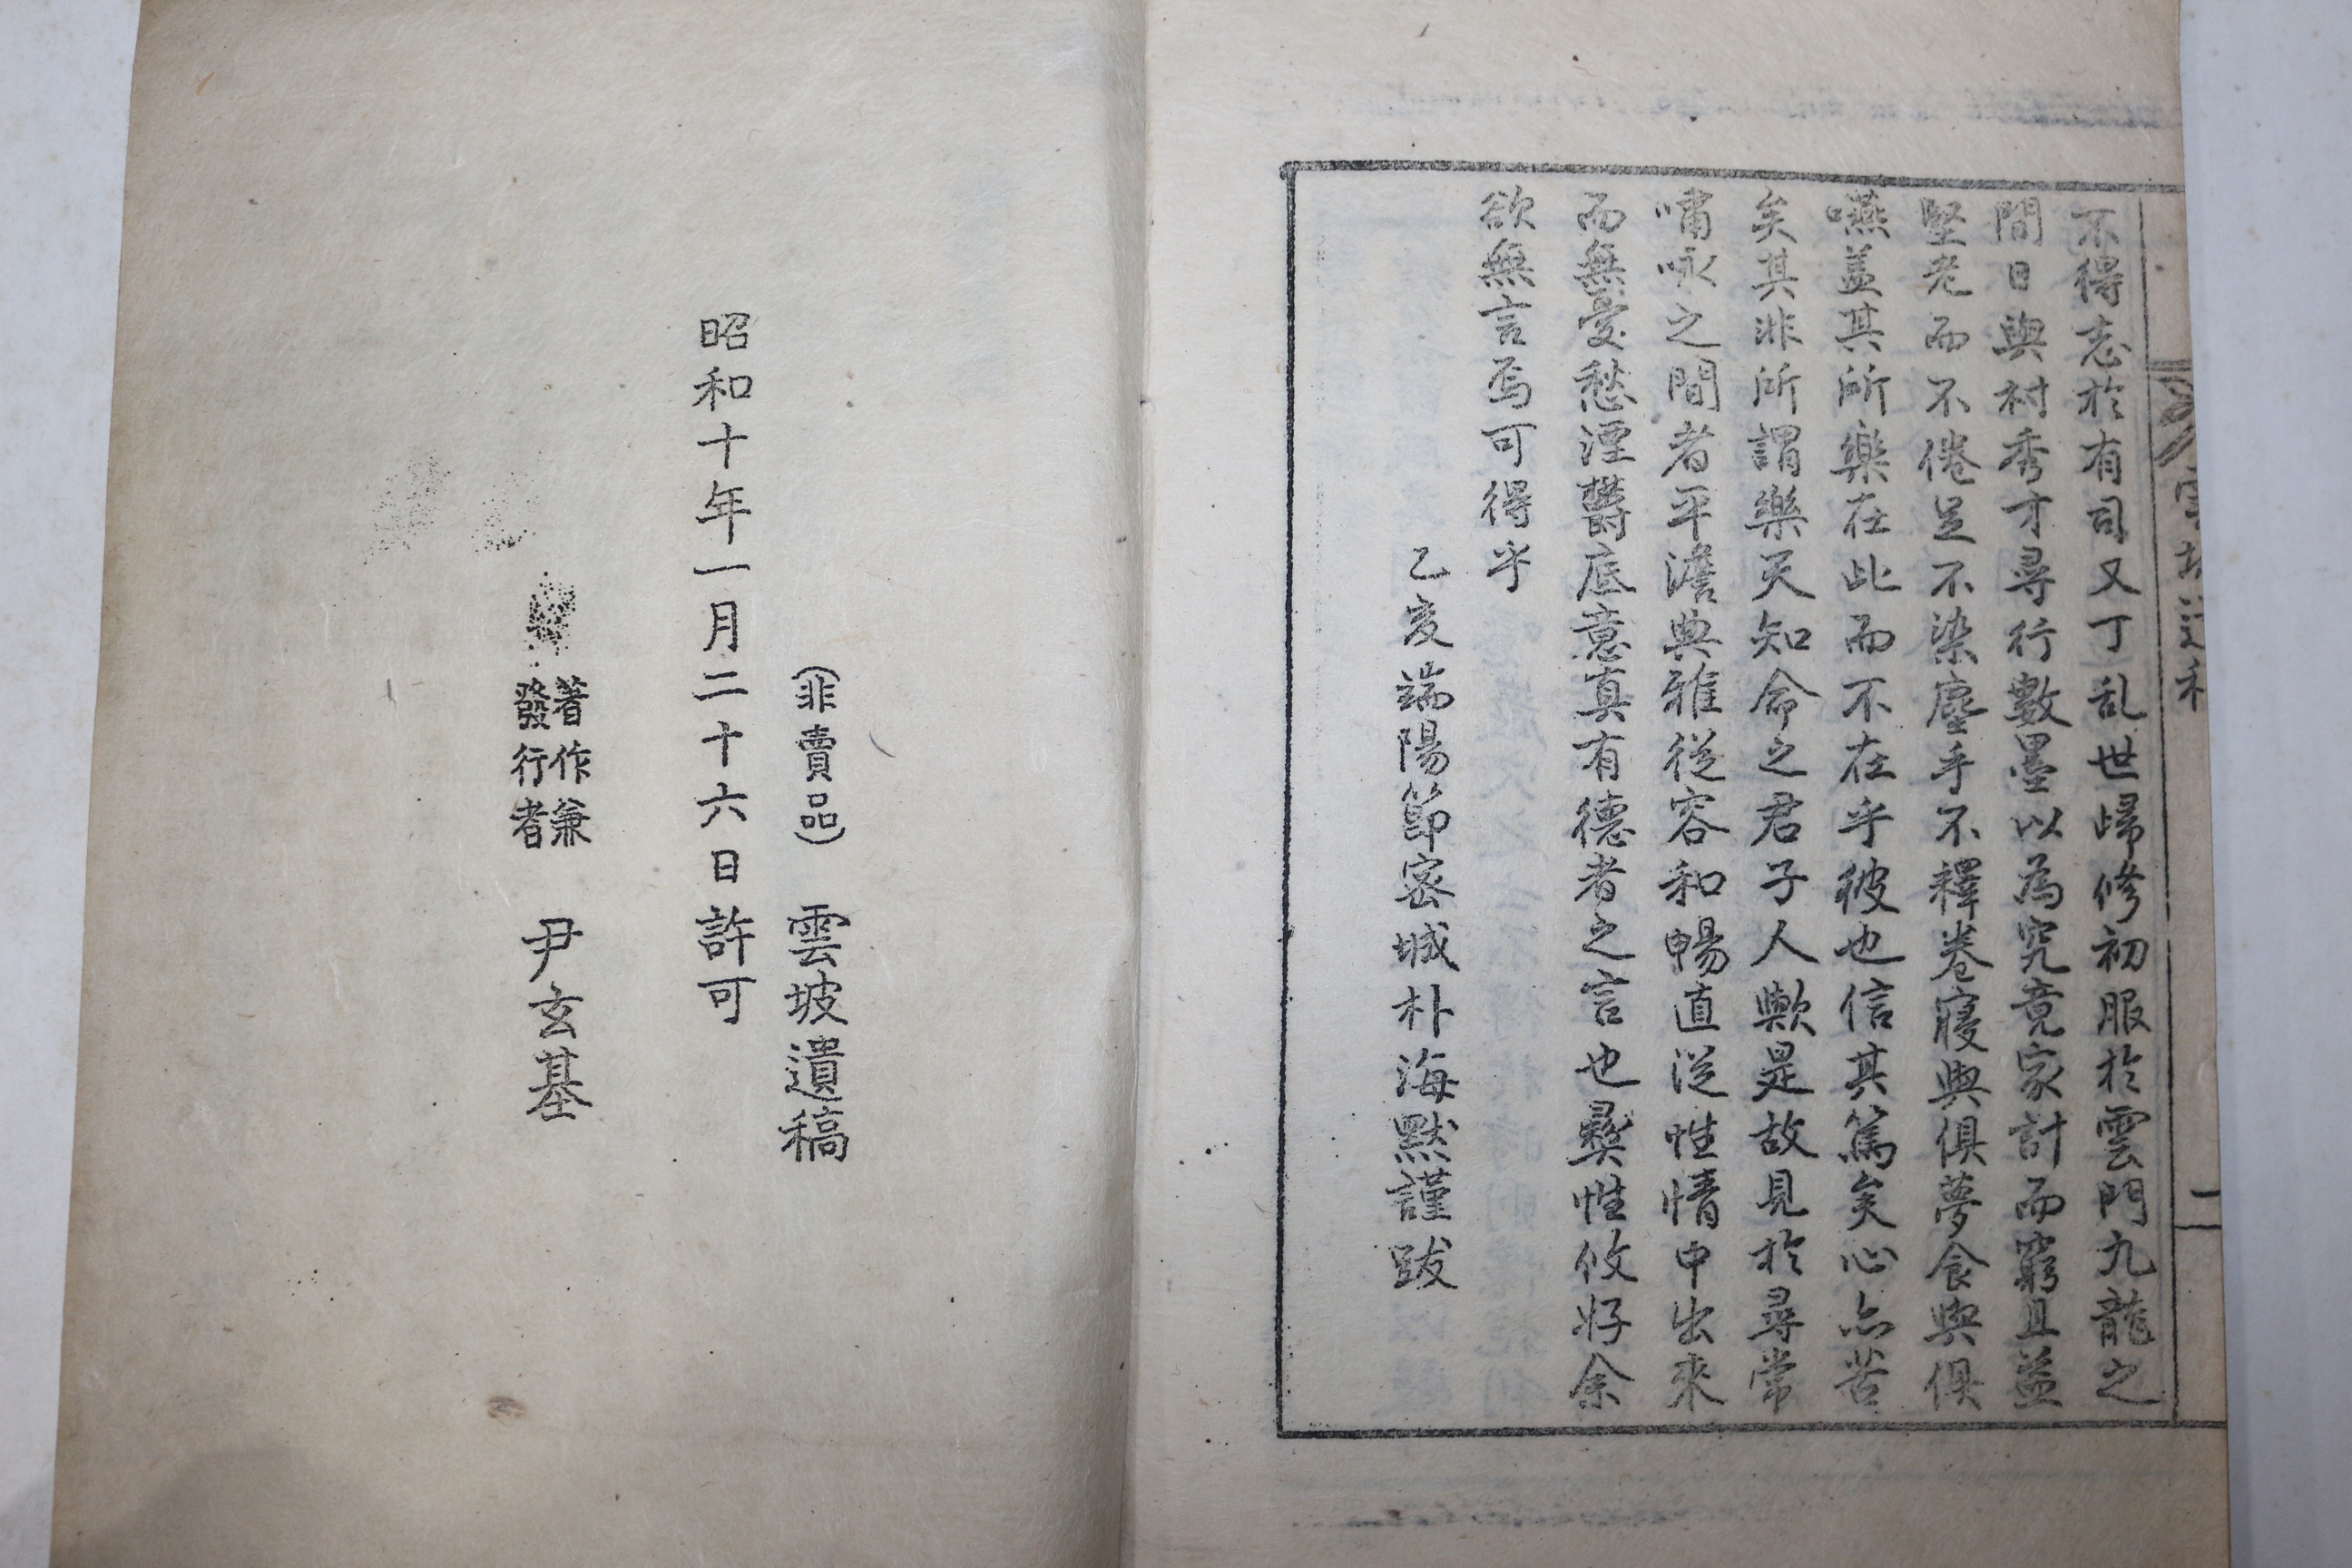 雲坡遺稿
二
不得志於有司又丁乱世歸修初服於雲門九龍之
間日與村秀才尋行數墨以為究竟家計而窮且益
堅老而不倦足不染塵手不釋卷寢與俱夢食與俱
嚥盖其所樂在此而不在乎彼也信其篤矣心亦苦
矣其非所謂樂天知命之君子人歟是故見於尋常
嘯咏之間者平澹典雅從容和暢直從性情中出來
而無憂愁湮欝底意真有德者之言也彛性攸好余
欲無言焉可得乎
乙亥端陽節密城朴海默謹跋
(非賣品) 雲坡遺稿
昭和十年一月二十六日許可
著作兼
發行者
尹玄基